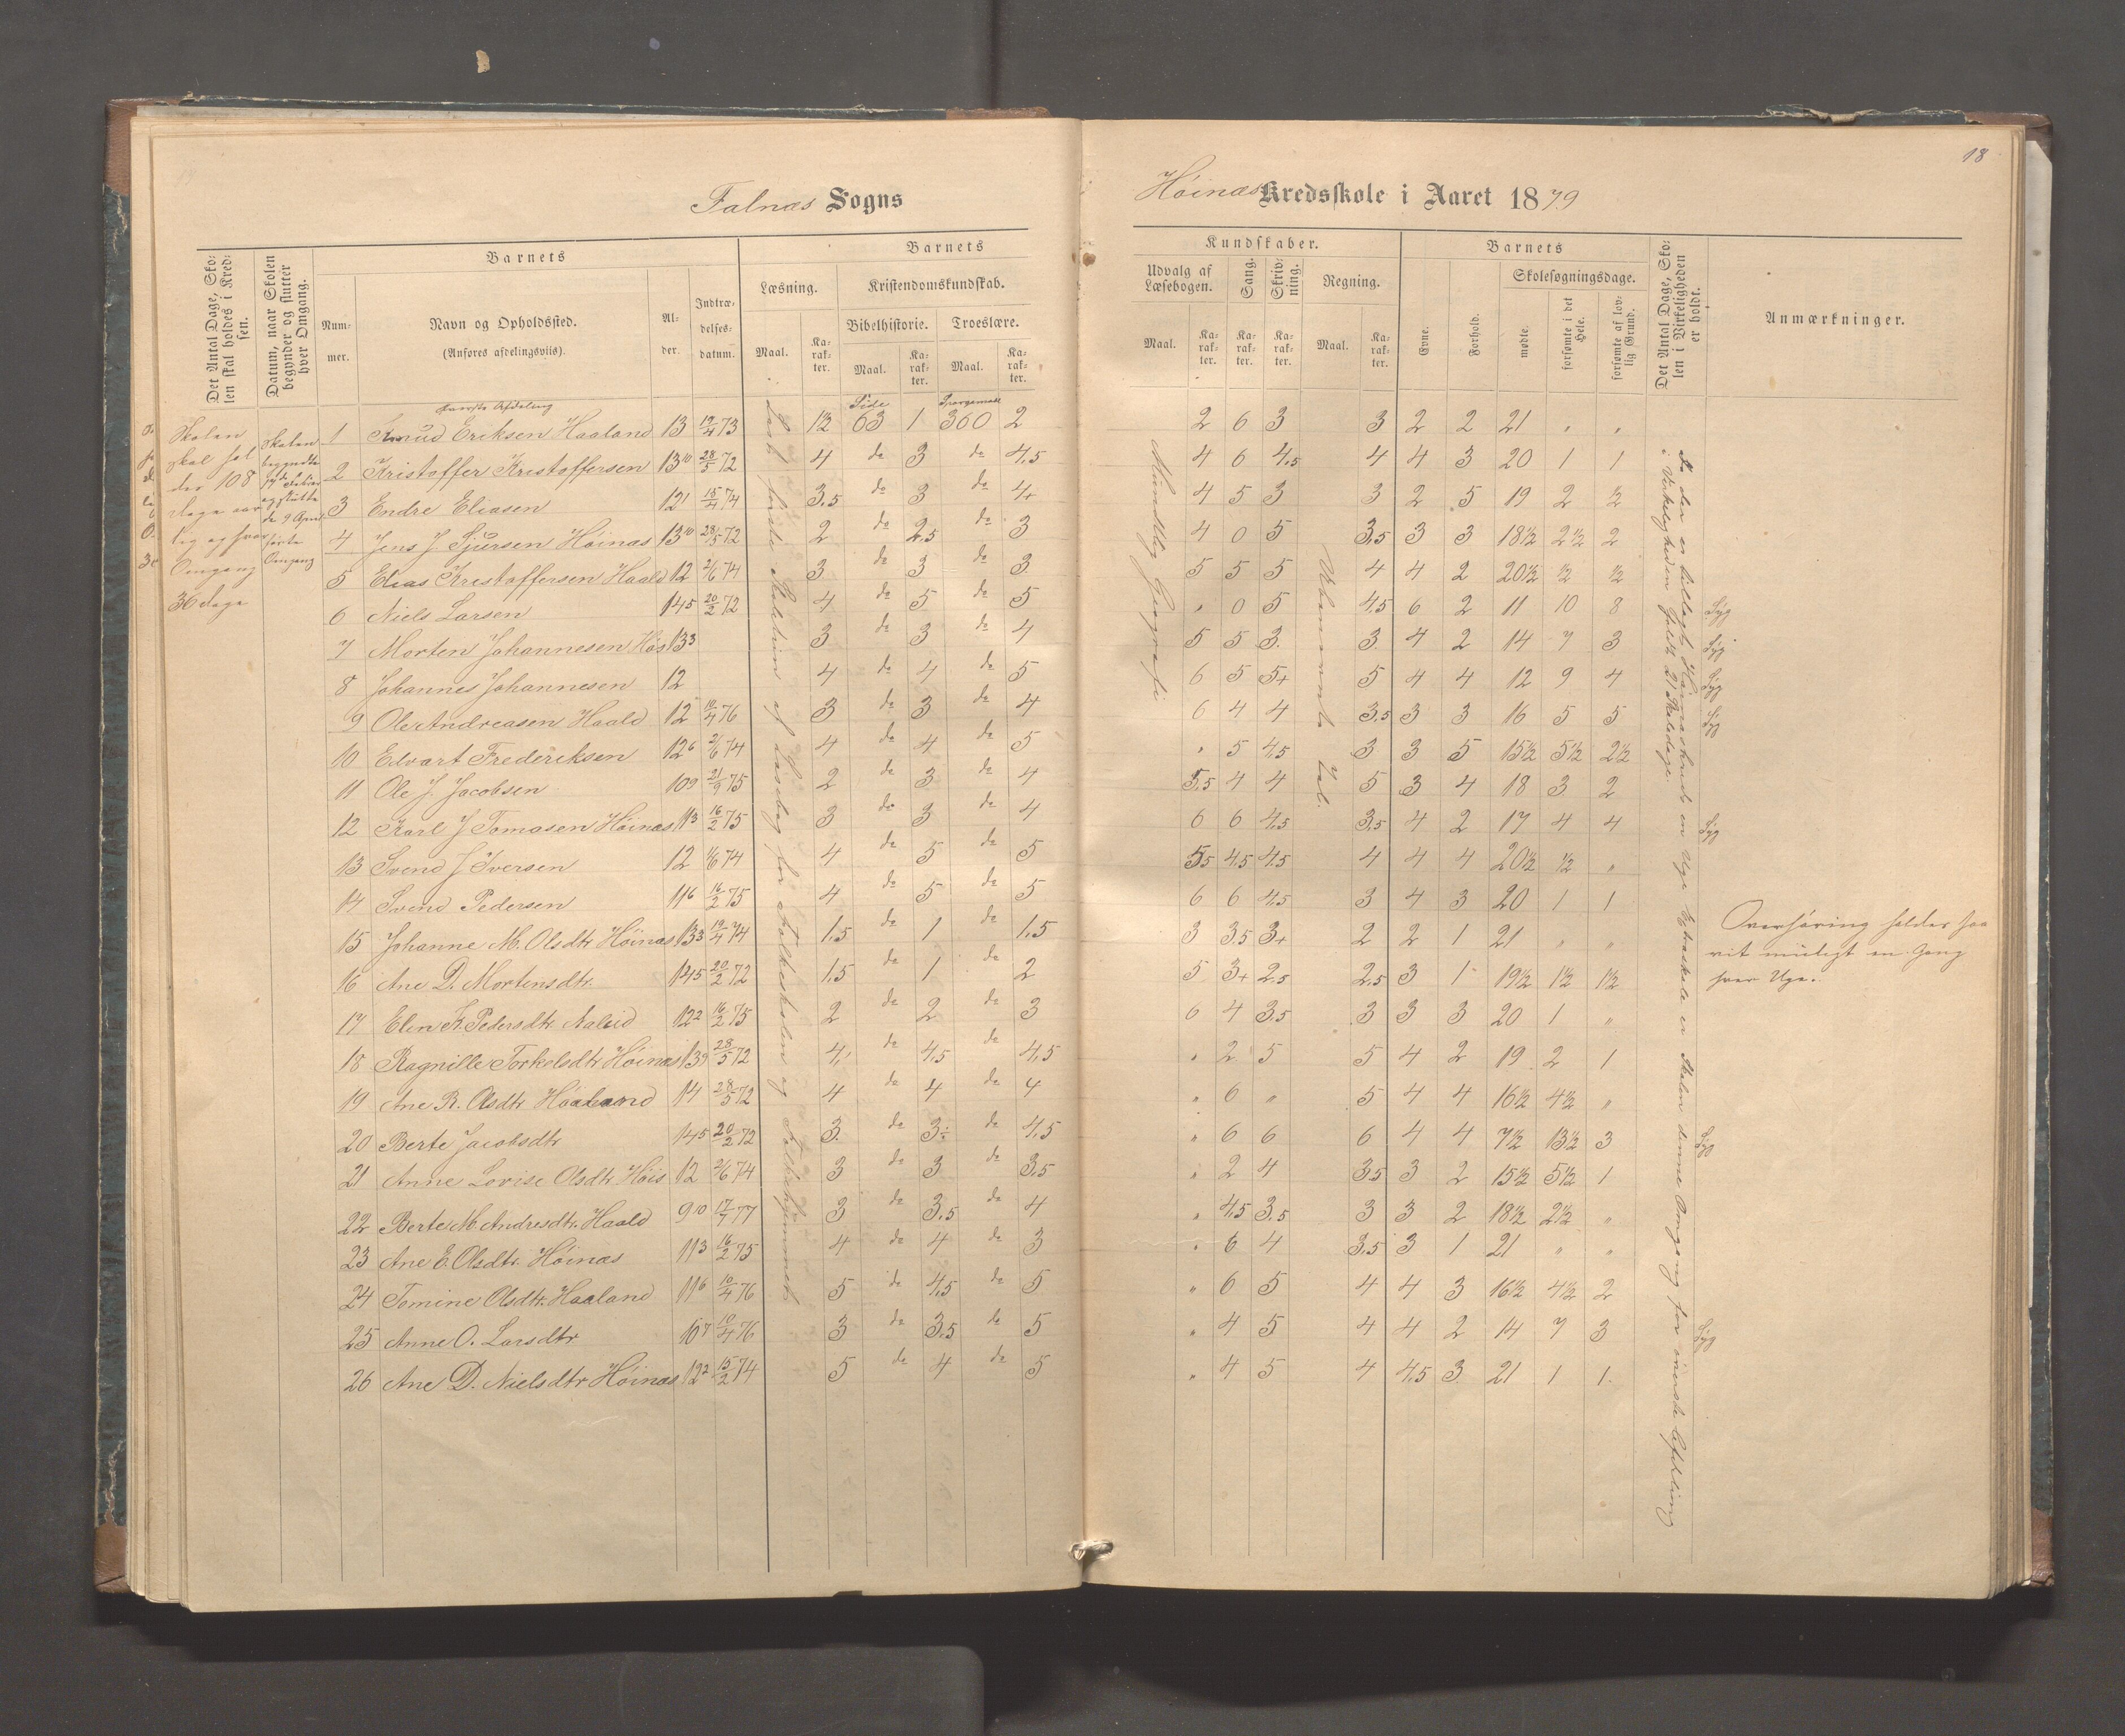 18
Falnæs Sogns
Høinæs Kredsskole i Aaret 1879
Det Antal Dage, Sko-
len skal holdes i Kred-
sen.
Datum, naar Skolen
begynder og slutter
hver Omgang.
Barnets
Num-
mer.
Navn og Opholdssted.
(Anføres afdelingsviis).
Al-
der.
Indtræ-
delses-
datum.
Barnets
Læsning.
Kristendomskundskab.
Bibelhistorie.
Troeslære.
Maal.
Ka-
rak-
ter.
Maal.
Ka-
rak-
ter.
Maal.
Ka-
rak-
ter.
Kundskaber.
Udvalg af
Læsebogen.
Sang.
Skriv-
ning.
Regning.
Maal.
Ka-
rak-
ter.
Ka-
rak-
ter.
Ka-
rak-
ter.
Maal.
Ka-
rak-
ter.
Barnets
Evne.
Forhold.
Skolesøgningsdage.
mødte.
forsømte i det
Hele.
forsømte af lov-
lig Grund.
Det Antal Dage, Sko-
len i Virkeligheden
er holdt.
Anmærkninger.
Skolen
skal hol
des 108
dage aar
lig og hver
Omgang
36 dage
Skolen
begyndte
og slutte
de 9 April
første
Omgang
øverste Afdeling
Side
Spørgsmaal
1 Knud Eriksen Haaland 13 19/4 73 1½ 63 1 360 2 2 6 3 3 2 2 21 " "
2 Kristoffer Kristoffersen 13 10 28/5 72 4 do 3 do 4,5 4 6 4,5 4 4 3 20 1 1
3 Endre Eliasen 12 1 15/4 74 3,5 do 3 do 4+ 4 5 3 3 2 5 19 2 ½
4 Jens J. Sjursen Høinæs 13 10 28/5 72 2 do 2,5 do 3 4 0 5 3,5 3 3 18½ 2½ 2
5 Elias Kristoffersen Haald 12 2/6 74 3 do 3 do 3 5 5 5 4 4 2 20½ ½ ½
6 Niels Larsen 14 5 20/2 72 4 do 5 do 5 " 0 5 4,5 6 2 11 10 8 Syg
7 Morten Johannesen Høs 13 3 3 do 3 do 4 5 5 3 3 4 2 14 7 3 Syg
8 Johannes Johannesen 12 4 do 4 do 5 6 5 5+ 5 4 4 12 9 4 Syg
9 Ole Andreasen Haald 12 10/4 76 3 do 3 do 4 6 4 4 3,5 3 3 16 5 5 Syg
10 Edvart Frederiksen 12 6 2/6 74 4 do 4 do 5 " 5 4,5 3 3 5 15½ 5½ 2½
11 Ole J. Jacobsen 10 9 21/9 75 2 do 3 do 4 5,5 4 4 5 3 4 18 3 2
12 Karl J Tomasen Høinæs 11 3 16/2 75 3 do 3 do 4 6 6 4,5 3,5 4 2 17 4 4 Syg
13 Svend J Iversen 12 2/6 74 4 do 5 do 5 5,5 4,5 4,5 4 4 4 20½ ½ "
14 Svend Pedersen 11 6 16/2 75 4 do 5 do 5 6 6 4,5 3 4 3 20 1 1
15 Johanne M. Olsdtr Høinæs 13 3 19/4 74 1,5 do 1 do 1,5 3 3,5 3+ 2 2 1 21 " "
16 Ane D. Mortensdtr. 14 5 20/2 72 1,5 do 1 do 2 5 3+ 2,5 2,5 3 1 19½ 1½ 1½
17 Elen K. Pedersdtr 12 2 16/2 75 2 do 2 do 3 6 4 3,5 3 3 3 20 1 "
18 Ragnille Torkelsdtr Høinæs 13 9 28/5 72 4 do 4,5 do 4,5 " 2 5 5 4 2 19 2 1
19 Ane R. Olsdtr Haaland 14 28/5 72 4 do 4 do 4 " 6 " 5 4 4 16½ 4½ "
20 Berte Jacobsdtr 14 5 20/2 72 3 do 3÷ do 4,5 " 6 6 6 4 4 7½ 13½ 3 Syg
21 Anne Lovise Olsdtr Høis 12 2/6 74 3 do 3 do 3,5 " 2 4 3,5 3 2 15½ 5½ 1
22 Berte M Andresdtr. Haald 9 10 17/7 77 3 do 3,5 do 4 " 4,5 3,5 3 3 2 18½ 2½ "
23 Ane E. Olsdtr. Høinæs 11 3 16/2 75 4 do 4 do 3 " 6 4 3,5 3 1 21 " "
24 Tomine Olsdtr. Haaland 11 6 10/4 76 5 do 4,5 do 5 " 6 5 4 4 3 16½ 4½ 2
25 Anne O. Larsdtr 10 7 10/4 76 3 do 3,5 do 5 " 4 5 4 4 2 14 7 3 Syg
26 Ane D. Nielsdtr Høinæs 12 2 15/2 74 5 do 4 do 5 " 4 5 4 4,5 3 21 1 1
Læst første Skoletrin af Læsebog for Folkeskolen og Folkehjemmet
Mundtlig Geografi
Ubenævnte Tal.
Da der er tillagt Høinæs Kreds en Uge Extraskole er Skolen denne Omgang for øverste Afdeling
i Virkeligheden holdt 21 Skoledage.
Overhøring holdes saa
vit muligt en Gang
hver Uge.